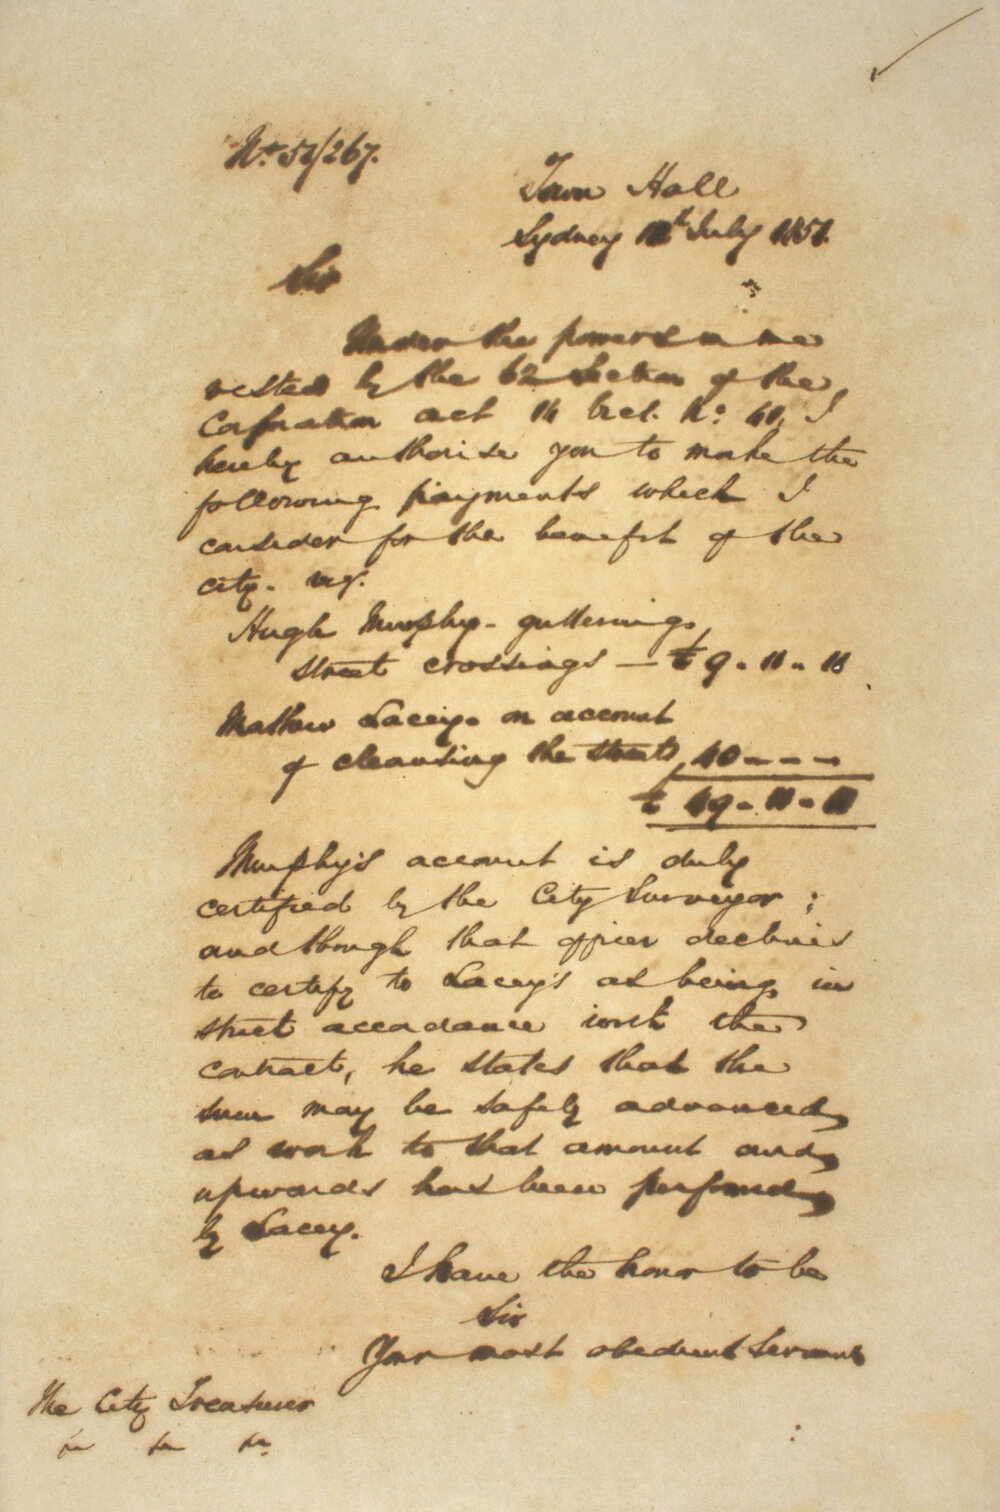 No. 51/267.
Town Hall
Sydney 11th July 1851.
Sir
Under the powers in me
vested by the 62 Section of the
Corporation act 14 Vict. No: 41, I
hereby authorise you to make the
following payments which I
consider for the benefit of the
city. viz.
Hugh Murphy - guttering,
street crossings — £9.11.11
Mathew Lacey. on account
of cleansing the streets, 40 - - -
£ 49.11.11
Murphy's account is duly
certified by the City Surveyor;
and though that officer declines
to certify to Lacey's as being in
strict accordance with the
contract, he states that the
sum may be safely advanced,
as work to that amount and
upwards has been performed
by Lacey.
I have the honor to be
Sir
Your most obedient Servant
The City Treasurer